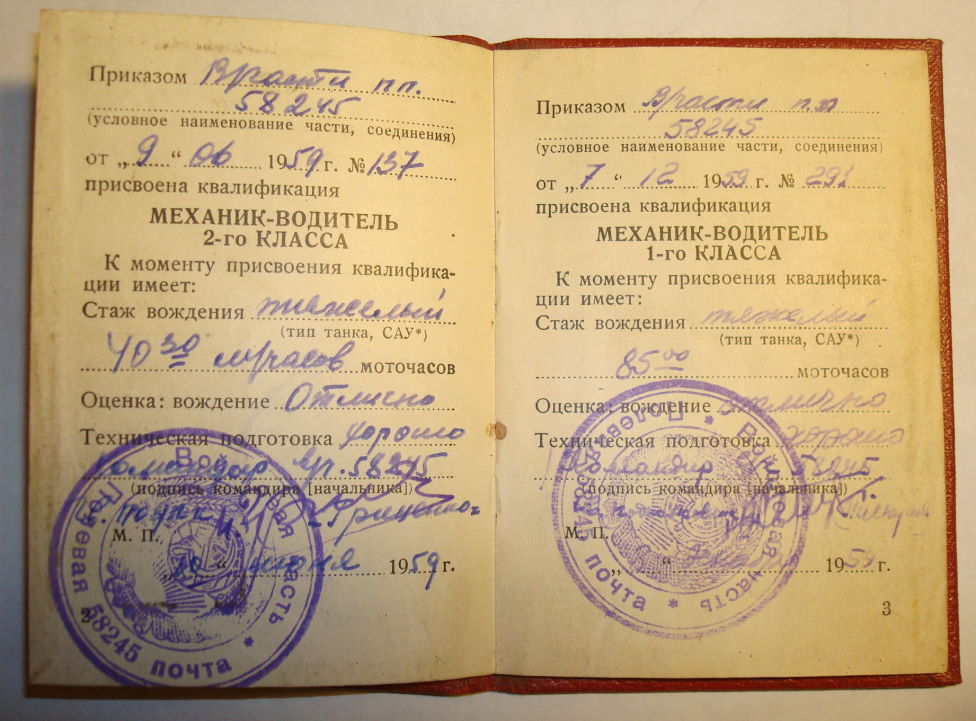 Приказом В/части п.п.
58245
(условное наименование части, соединения)
от „9“ 06 1959 г. № 137
присвоена квалификация
МЕХАНИК-ВОДИТЕЛЬ
2-го КЛАССА
К моменту присвоения квалифика-
ции имеет:
Стаж вождения тяжелый
(тип танка, САУ*)
моточасов
Оценка: вождение Отлично
Техническая подготовка хорошо
Командир в/ч 58245
(подпись командира [начальника])
Гриценко
М. П.
„10“ июня 1959 г.
2
Войсковая часть * Полевая почта * 58245
Приказом В/части п.п
58245
(условное наименование части, соединения)
от „7“ 12 1959 г. № 291
присвоена квалификация
МЕХАНИК-ВОДИТЕЛЬ
1-го КЛАССА
К моменту присвоения квалифика-
ции имеет:
Стаж вождения тяжелый
(тип танка, САУ*)
85 00 моточасов
Оценка: вождение отлично
Техническая подготовка хорошо
Командир 58245
(подпись командира [начальника])
М. П.
1959 г.
3
Войсковая часть * Полевая почта * 58245